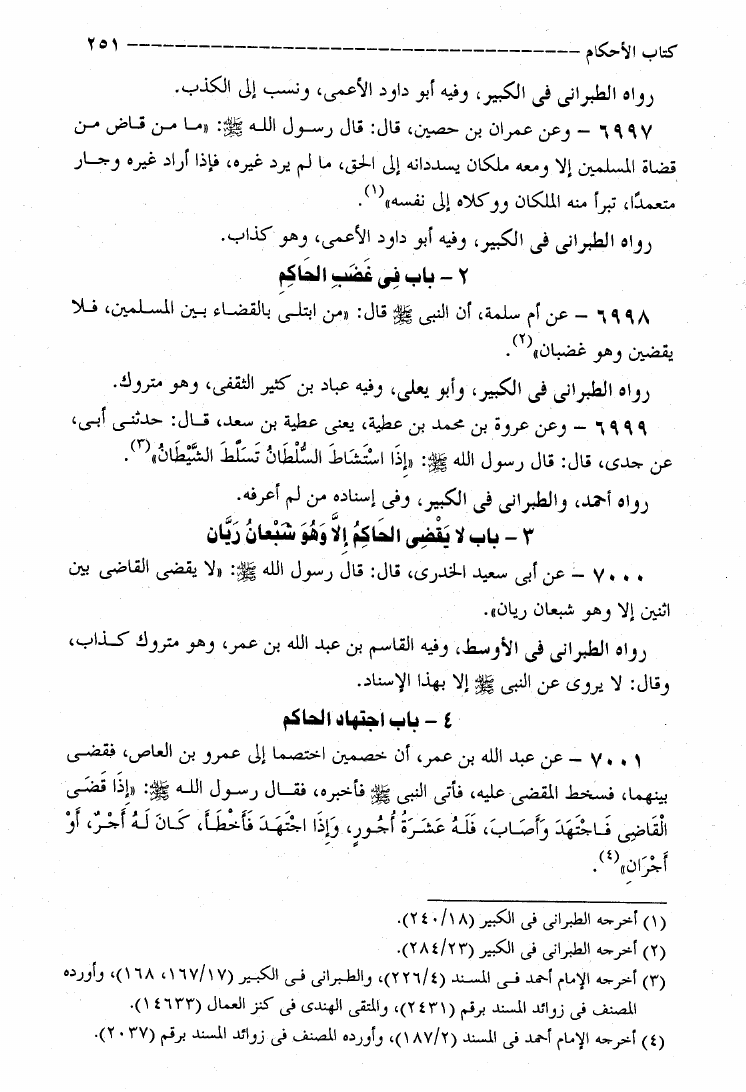 كتاب الأحكام -------------------------------------- ٢٥١
رواه الطبرانى فى الكبير، وفيه أبو داود الأعمى، ونسب إلى الكذب.
٦٩٩٧ – وعن عمران بن حصين، قال: قال رسول الله ﷺ: «ما من قاض من
قضاة المسلمين إلا ومعه ملكان يسددانه إلى الحق، ما لم يرد غيره، فإذا أراد غيره وجار
متعمدًا، تبرأ منه الملكان ووكلاه إلى نفسه»(١).
رواه الطبرانى فى الكبير، وفيه أبو داود الأعمى، وهو كذاب.
٢ – باب فِى غَضَبِ الحَاكِمِ
٦٩٩٨ – عن أم سلمة، أن النبى ﷺ قال: «من ابتلى بالقضاء بين المسلمين، فلا
يقضين وهو غضبان»(٢).
رواه الطبرانى فى الكبير، وأبو يعلى، وفيه عباد بن كثير الثقفى، وهو متروك.
٦٩٩٩ – وعن عروة بن محمد بن عطية، يعنى عطية بن سعد، قال: حدثنى أبى،
عن جدى، قال: قال رسول الله ﷺ: «إِذَا اسْتَشَاطَ السُّلْطَانُ تَسَلَّطَ الشَّيْطَانُ»(٣).
رواه أحمد، والطبرانى فى الكبير، وفى إسناده من لم أعرفه.
٣ – باب لا يَقْضِى الحَاكِمُ إِلاَّ وَهُوَ شَبْعانُ رَيَّان
٧٠٠٠ – عن أبى سعيد الخدرى، قال: قال رسول الله ﷺ: «لا يقضى القاضى بين
اثنين إلا وهو شبعان ريان».
رواه الطبرانى فى الأوسط، وفيه القاسم بن عبد الله بن عمر، وهو متروك كذاب،
وقال: لا يروى عن النبى ﷺ إلا بهذا الإسناد.
٤ – باب اجتهاد الحاكم
٧٠٠١ – عن عبد الله بن عمر، أن خصمين اختصما إلى عمرو بن العاص، فقضى
بينهما، فسخط المقضى عليه، فأتى النبى ﷺ فأخبره، فقال رسول الله ﷺ: «إِذَا قَضَى
الْقَاضِى فَاجْتَهَدَ وَأَصَابَ، فَلَهُ عَشَرَةُ أُجُورٍ، وَإِذَا اجْتَهَدَ فَأَخْطَأَ، كَانَ لَهُ أَجْرٌ، أَوْ
أَجْرَانِ»(٤).
(١) أخرجه الطبرانى فى الكبير (٢٤٠/١٨).
(٢) أخرجه الطبرانى فى الكبير (٢٨٤/٢٣).
(٣) أخرجه الإمام أحمد فى المسند (٢٢٦/٤)، والطبرانى فى الكبير (١٦٧/١٧، ١٦٨)، وأورده
المصنف فى زوائد المسند برقم (٢٤٣١)، والمتقى الهندى فى كنز العمال (١٤٦٣٣).
(٤) أخرجه الإمام أحمد فى المسند (١٨٧/٢)، وأورده المصنف فى زوائد المسند برقم (٢٠٣٧).